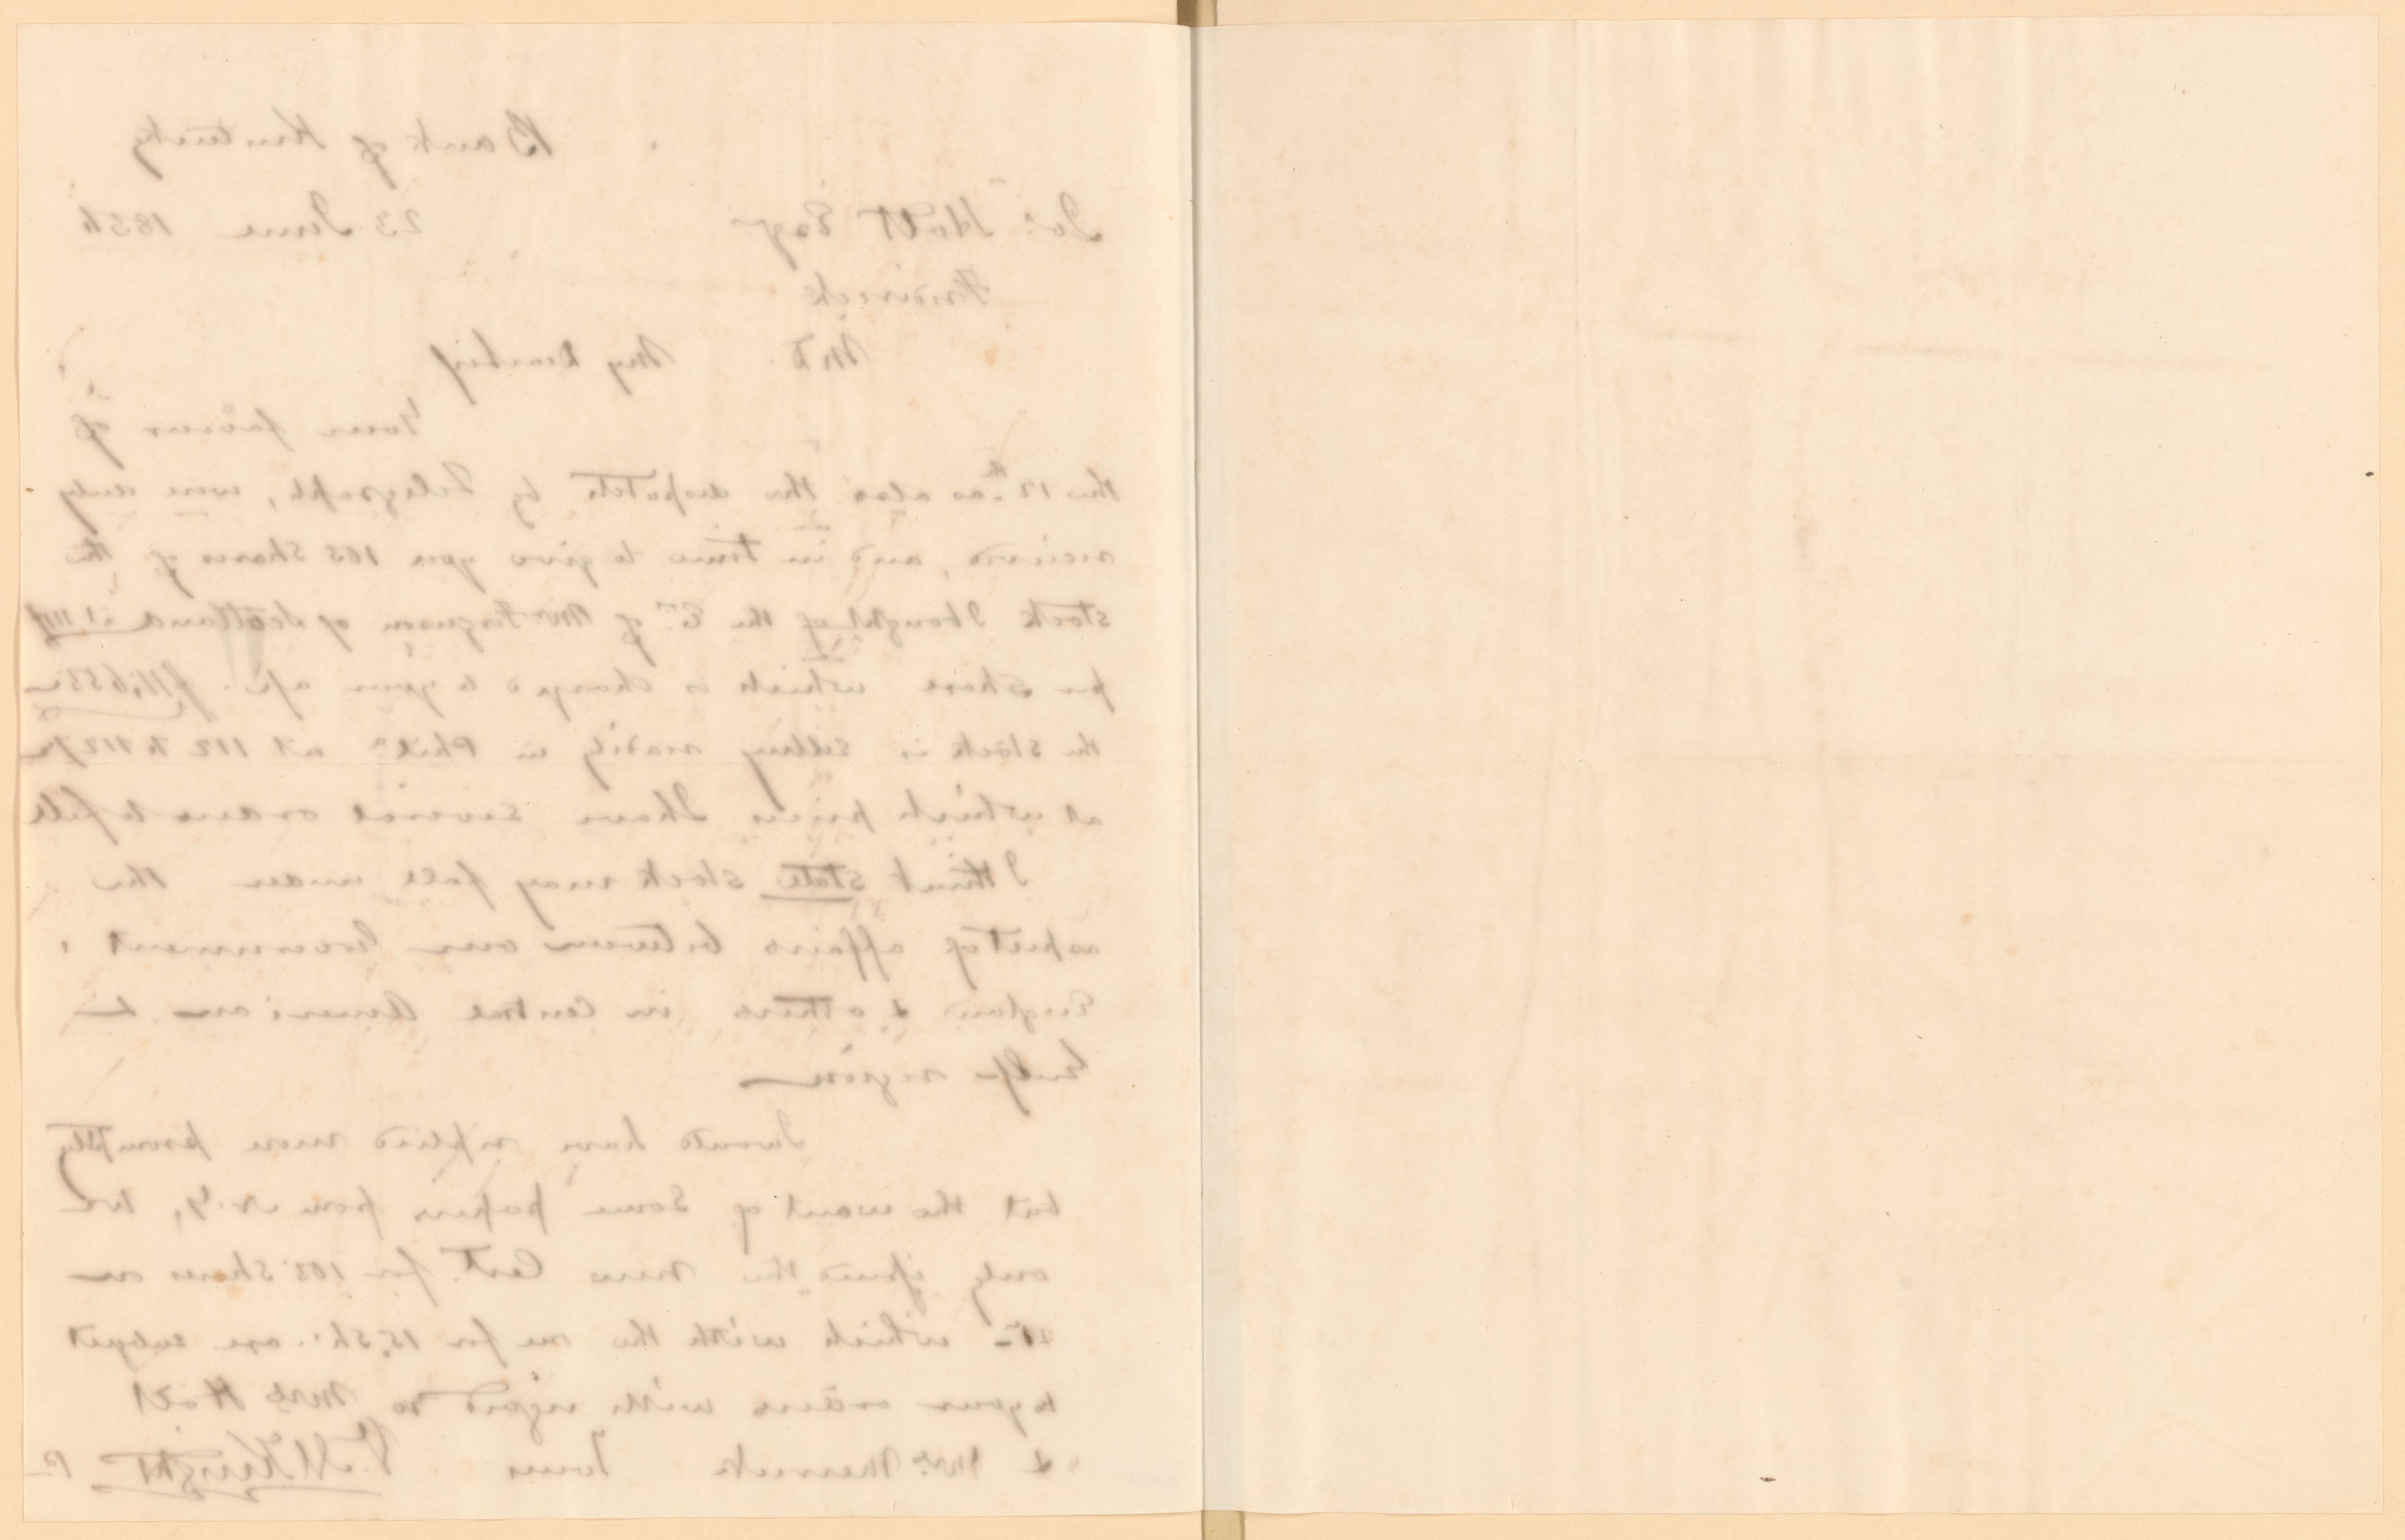 Bank of Kentucky
Jos: Holt Esqr 23 June 1854
Frederick
Md. My Dear Sir
Your favour of
the 12th as also the despatch by Telegraph, were duly
received, and in time to give you 105 Shares of the
stock I bought of the Exr of Mr Ferguson of Scotland at 111$
per share which is charged to your a/c. $11,655
the stock is selling readily in Phila at 112 to 112½
at which prices I have several orders to fill
I think state stock may fall under the
aspect of affairs between our Government,
England & others in Central American &
Gulf region
I would have replied more promptly
but the want of some papers from N.Y, we
only issued the new Cert. for 105 shares on
which with the one for 15 Sh. are subject
to your orders with regard to Mrs Holt
& Mrs Merrick Yours V. McKnight